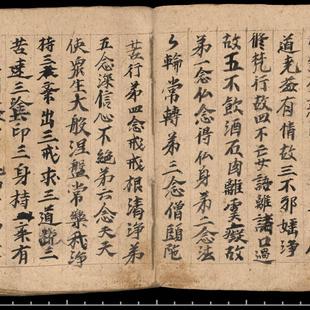 道光每有情故三不邪婬淨
修梵行故四不妄語離諸口過
故五不飲酒肉離癡故
弟一念仏念得仏身弟二念法
〻輪常轉弟三念僧頭陀
苦行弟四念戒戒根清淨弟
五念深信心不絕弟六念天天
使衆生大般涅盤常樂我淨
持三出三戒求三道斷三
苦達三塗印三身持乘有